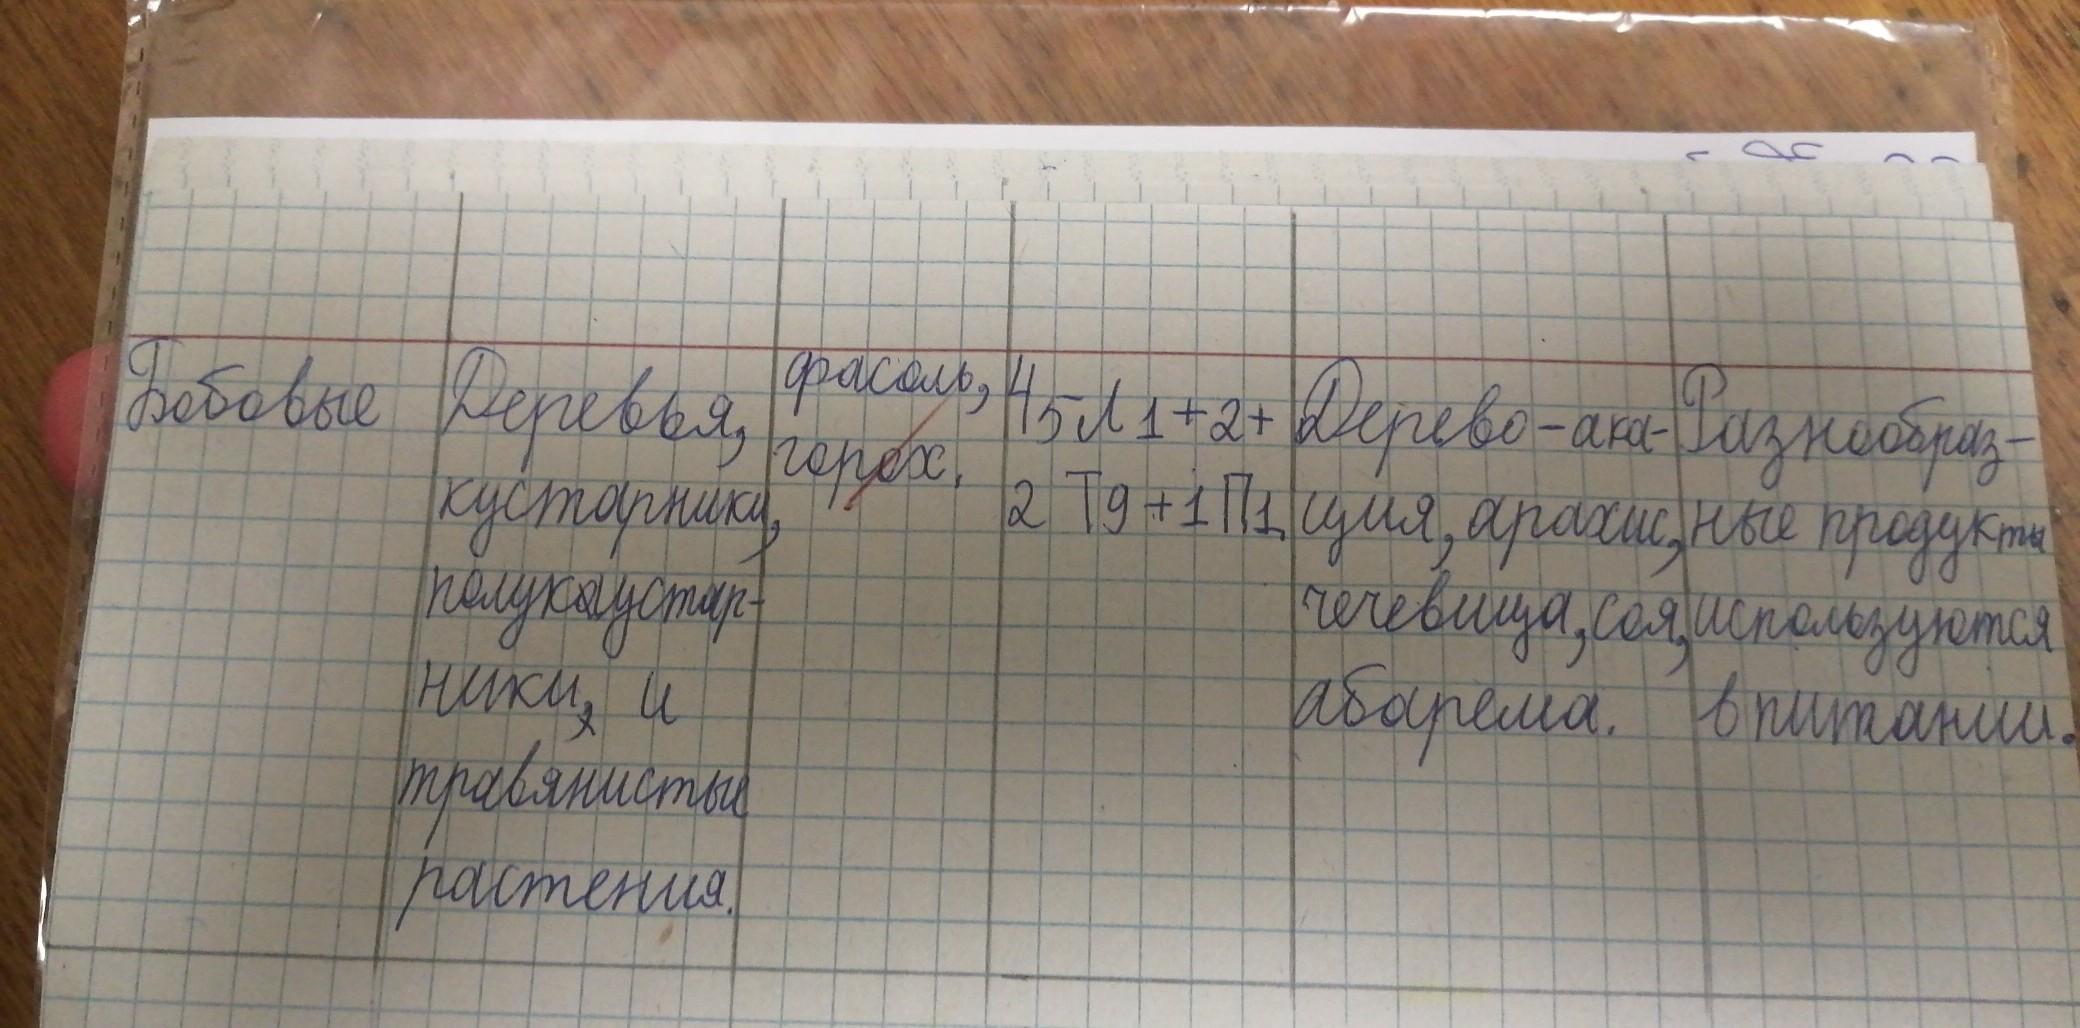 Бобовые
Деревья,
кустарники,
полукаустар-
ники, и
травянистые
растения.
фасоль,
горох.
Ч5Л1+2+
2 Т9+1П1
Дерево-ака-
ция, арахис,
чечевица, соя,
абарема.
Разнообраз-
ные продукты
используются
в питании.